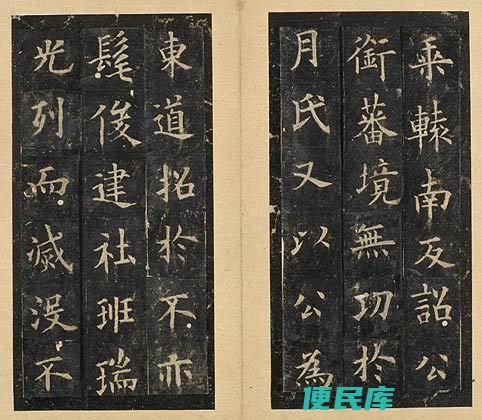 乘轅南反詔公
銜蕃境無功於
月氏又以公為
東道招於不亦
髦俊建社班瑞
光列而滅沒不
便民库